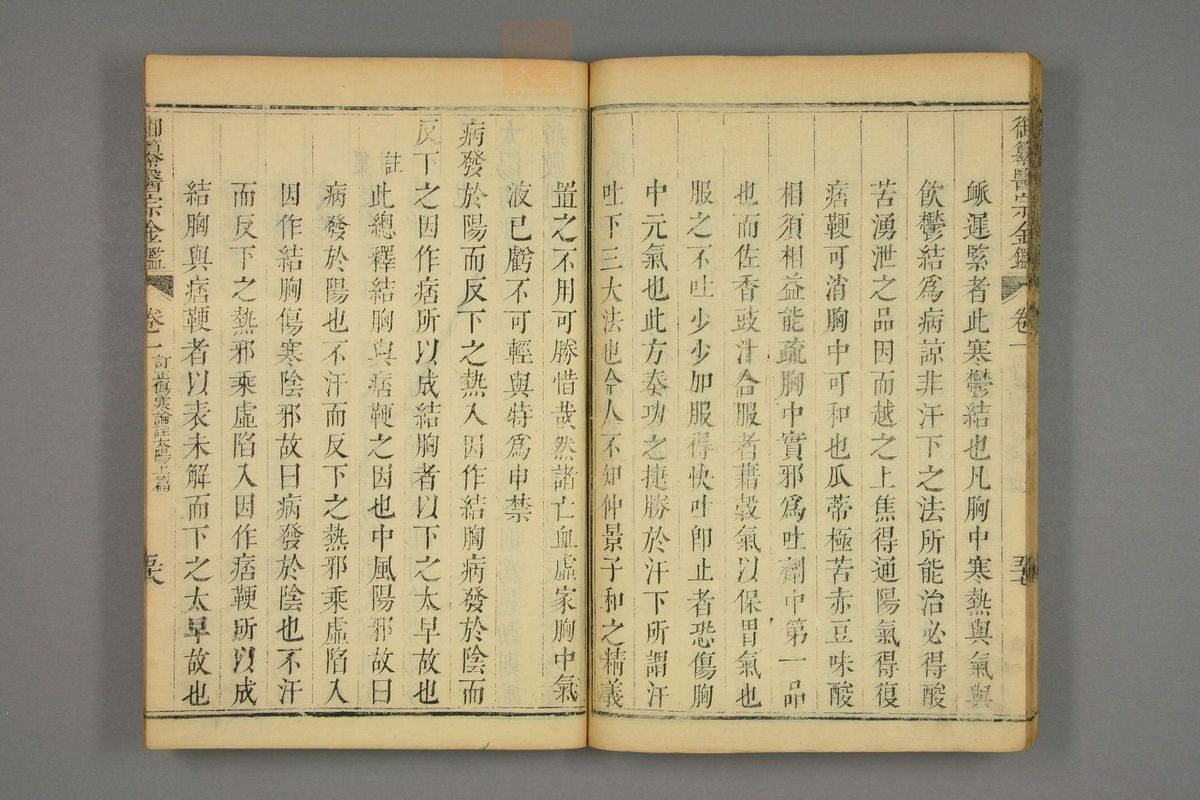 御纂醫宗金鑑 卷一
脈遲緊者此寒鬱結也凡胸中寒熱與氣與
飲鬱結爲病諒非汗下之法所能治必得酸
苦湧泄之品因而越之上焦得通陽氣得復
痞鞕可消胸中可和也瓜蒂極苦赤豆味酸
相須相益能疏胸中實邪爲吐劑中第一品
也而佐香豉汁合服者藉穀氣以保胃氣也
服之不吐少少加服得快吐卽止者恐傷胸
中元氣也此方奏功之捷勝於汗下所謂汗
吐下三大法也今人不知仲景子和之精義
置之不用可勝惜哉然諸亡血虛家胸中氣
液已虧不可輕與特爲申禁
病發於陽而反下之熱入因作結胸病發於陰而
反下之因作痞所以成結胸者以下之太早故也
註
此總釋結胸與痞鞕之因也中風陽邪故曰
病發於陽也不汗而反下之熱邪乘虛陷入
因作結胸傷寒陰邪故曰病發於陰也不汗
而反下之熱邪乘虛陷入因作痞鞕所以成
結胸與痞鞕者以表未解而下之太早故也
御纂醫宗金鑑 卷一 訂正傷寒論註太陽上篇